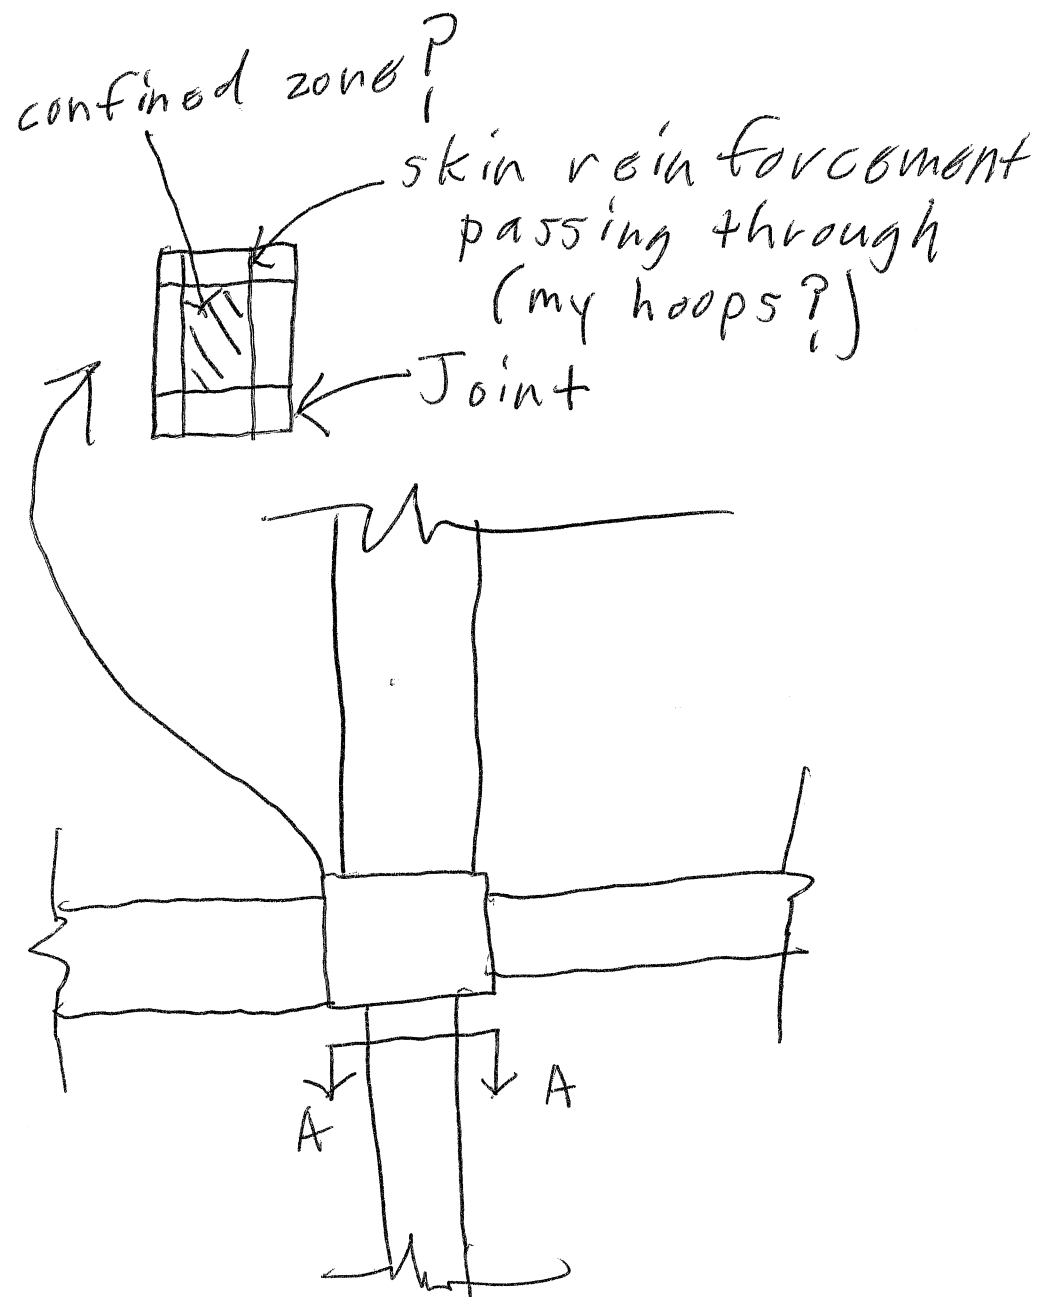 confined zone?
skin reinforcement
passing through
(my hoops?)
Joint
A
A